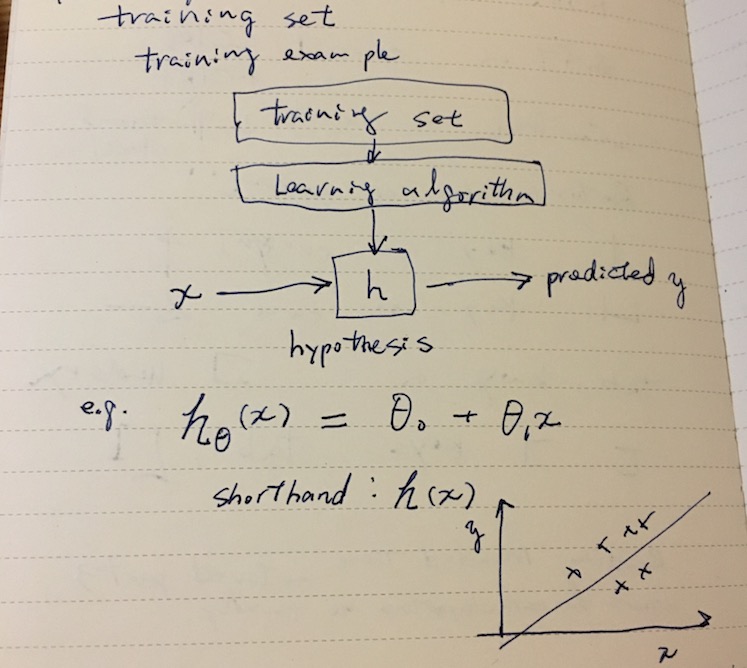 training set
training example
training set
Learning algorithm
x h predicted y
hypothesis
e.g. hθ(x) = θ₀ + θ₁x
shorthand : h(x)
y
x